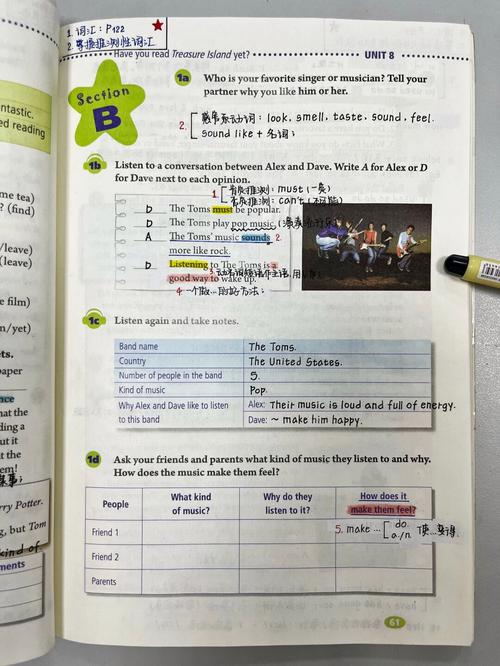 1. 词汇: P122
2. 掌握推测性词汇
Have you read Treasure Island yet?
UNIT 8
Section
B
1a Who is your favorite singer or musician? Tell your
partner why you like him or her.
2. 感官系动词: look, smell, taste, sound, feel.
sound like + 名词;
1b Listen to a conversation between Alex and Dave. Write A for Alex or D
for Dave next to each opinion.
1. 肯定推测: must (一定)
否定推测: can't (不可能)
D The Toms must be popular.
D The Toms play pop music.
A The Toms' music sounds 2.
more like rock.
D Listening to The Toms is a
3.
good way to wake up.
4. 一个做…的好方法;
1c Listen again and take notes.
Band name The Toms.
Country The United States.
Number of people in the band 5.
Kind of music Pop.
Why Alex and Dave like to listen Alex: Their music is loud and full of energy.
to this band Dave: ~ make him happy.
1d Ask your friends and parents what kind of music they listen to and why.
How does the music make them feel?
People What kind of music? Why do they listen to it? How does it make them feel?
Friend 1 5. make … do. a./n. 使…变得
Friend 2
Parents
61
ntastic.
ed reading
me tea)
? (find)
/leave)
(leave)
e film)
n/yet)
ts.
paper
nce
hat the
ding a
ut it
t the
em!
rry Potter.
g, but Tom
kind of
ments